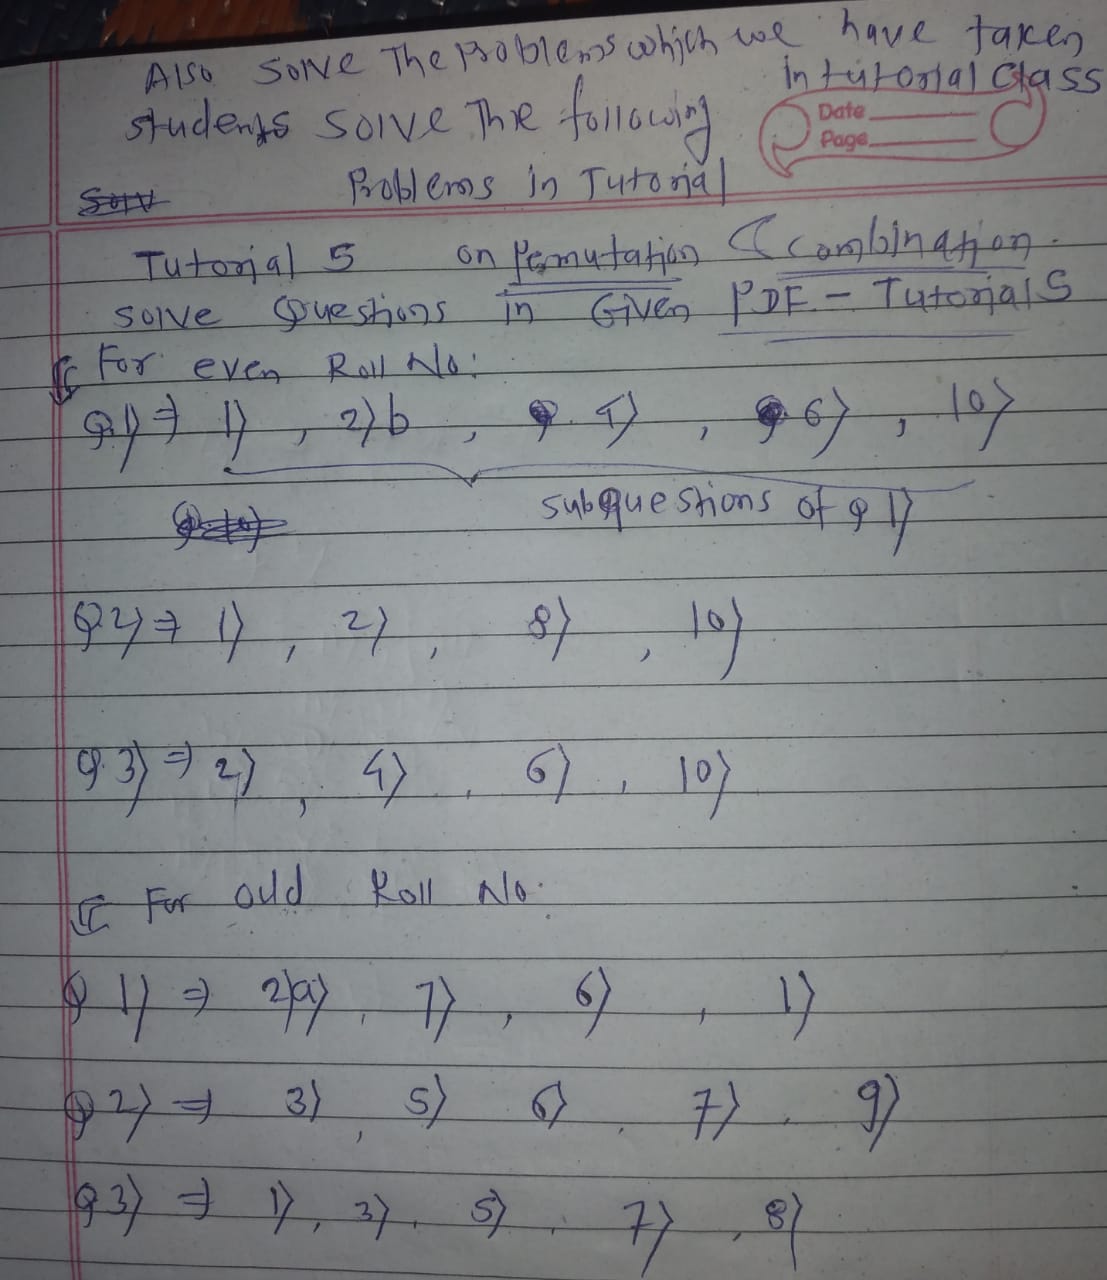 Also solve The problems which we have taken
in tutorial class
students solve The following
Date
Page
Problems in Tutorial
Tutorial 5 on Permutation & Combination.
solve Questions in Given PDF - Tutorial 5
For even Roll No:
Q.1) ⇒ 1) , 2) b , 4) , 6) , 10)
subquestions of Q 1)
Q 2) ⇒ 1) , 2) , 8) , 10)
Q.3) ⇒ 2) , 4) , 6) , 10)
For odd Roll No.
Q 1) ⇒ 2) a) , 7) , 6) , 1)
Q 2) ⇒ 3) , 5) 6) , 7) , 9)
Q 3) ⇒ 1) , 3) , 5) , 7) , 8)